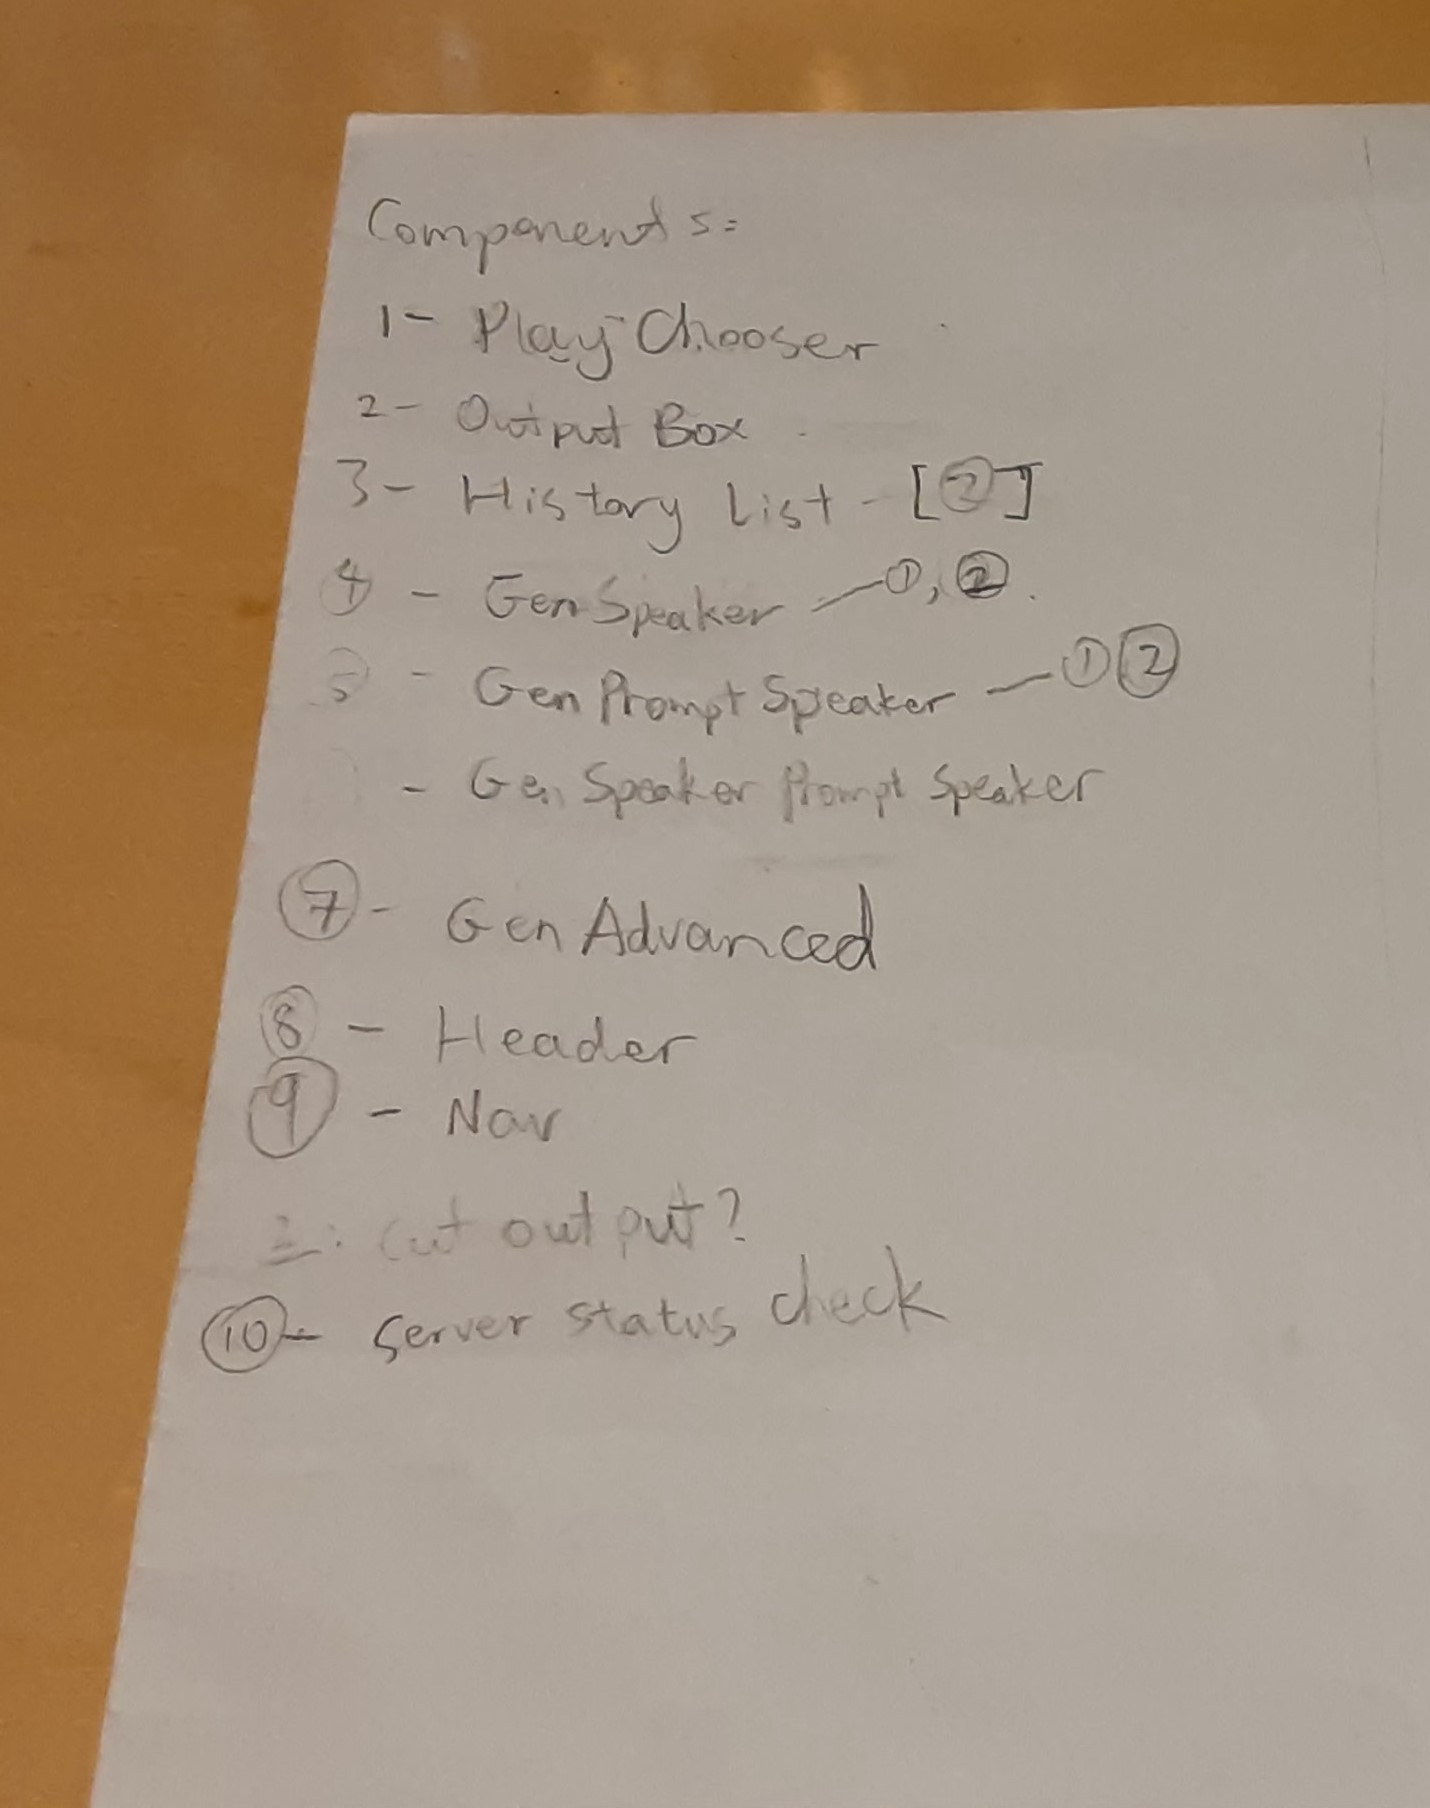 Components:
1- Play Chooser
2- Output Box
3- History List - [②]
④ - Gen Speaker - ①, ②
⑤ - Gen Prompt Speaker - ① ②
- Gen Speaker Prompt Speaker
⑦ - Gen Advanced
⑧ - Header
⑨ - Nav
cut output?
⑩ - server status check